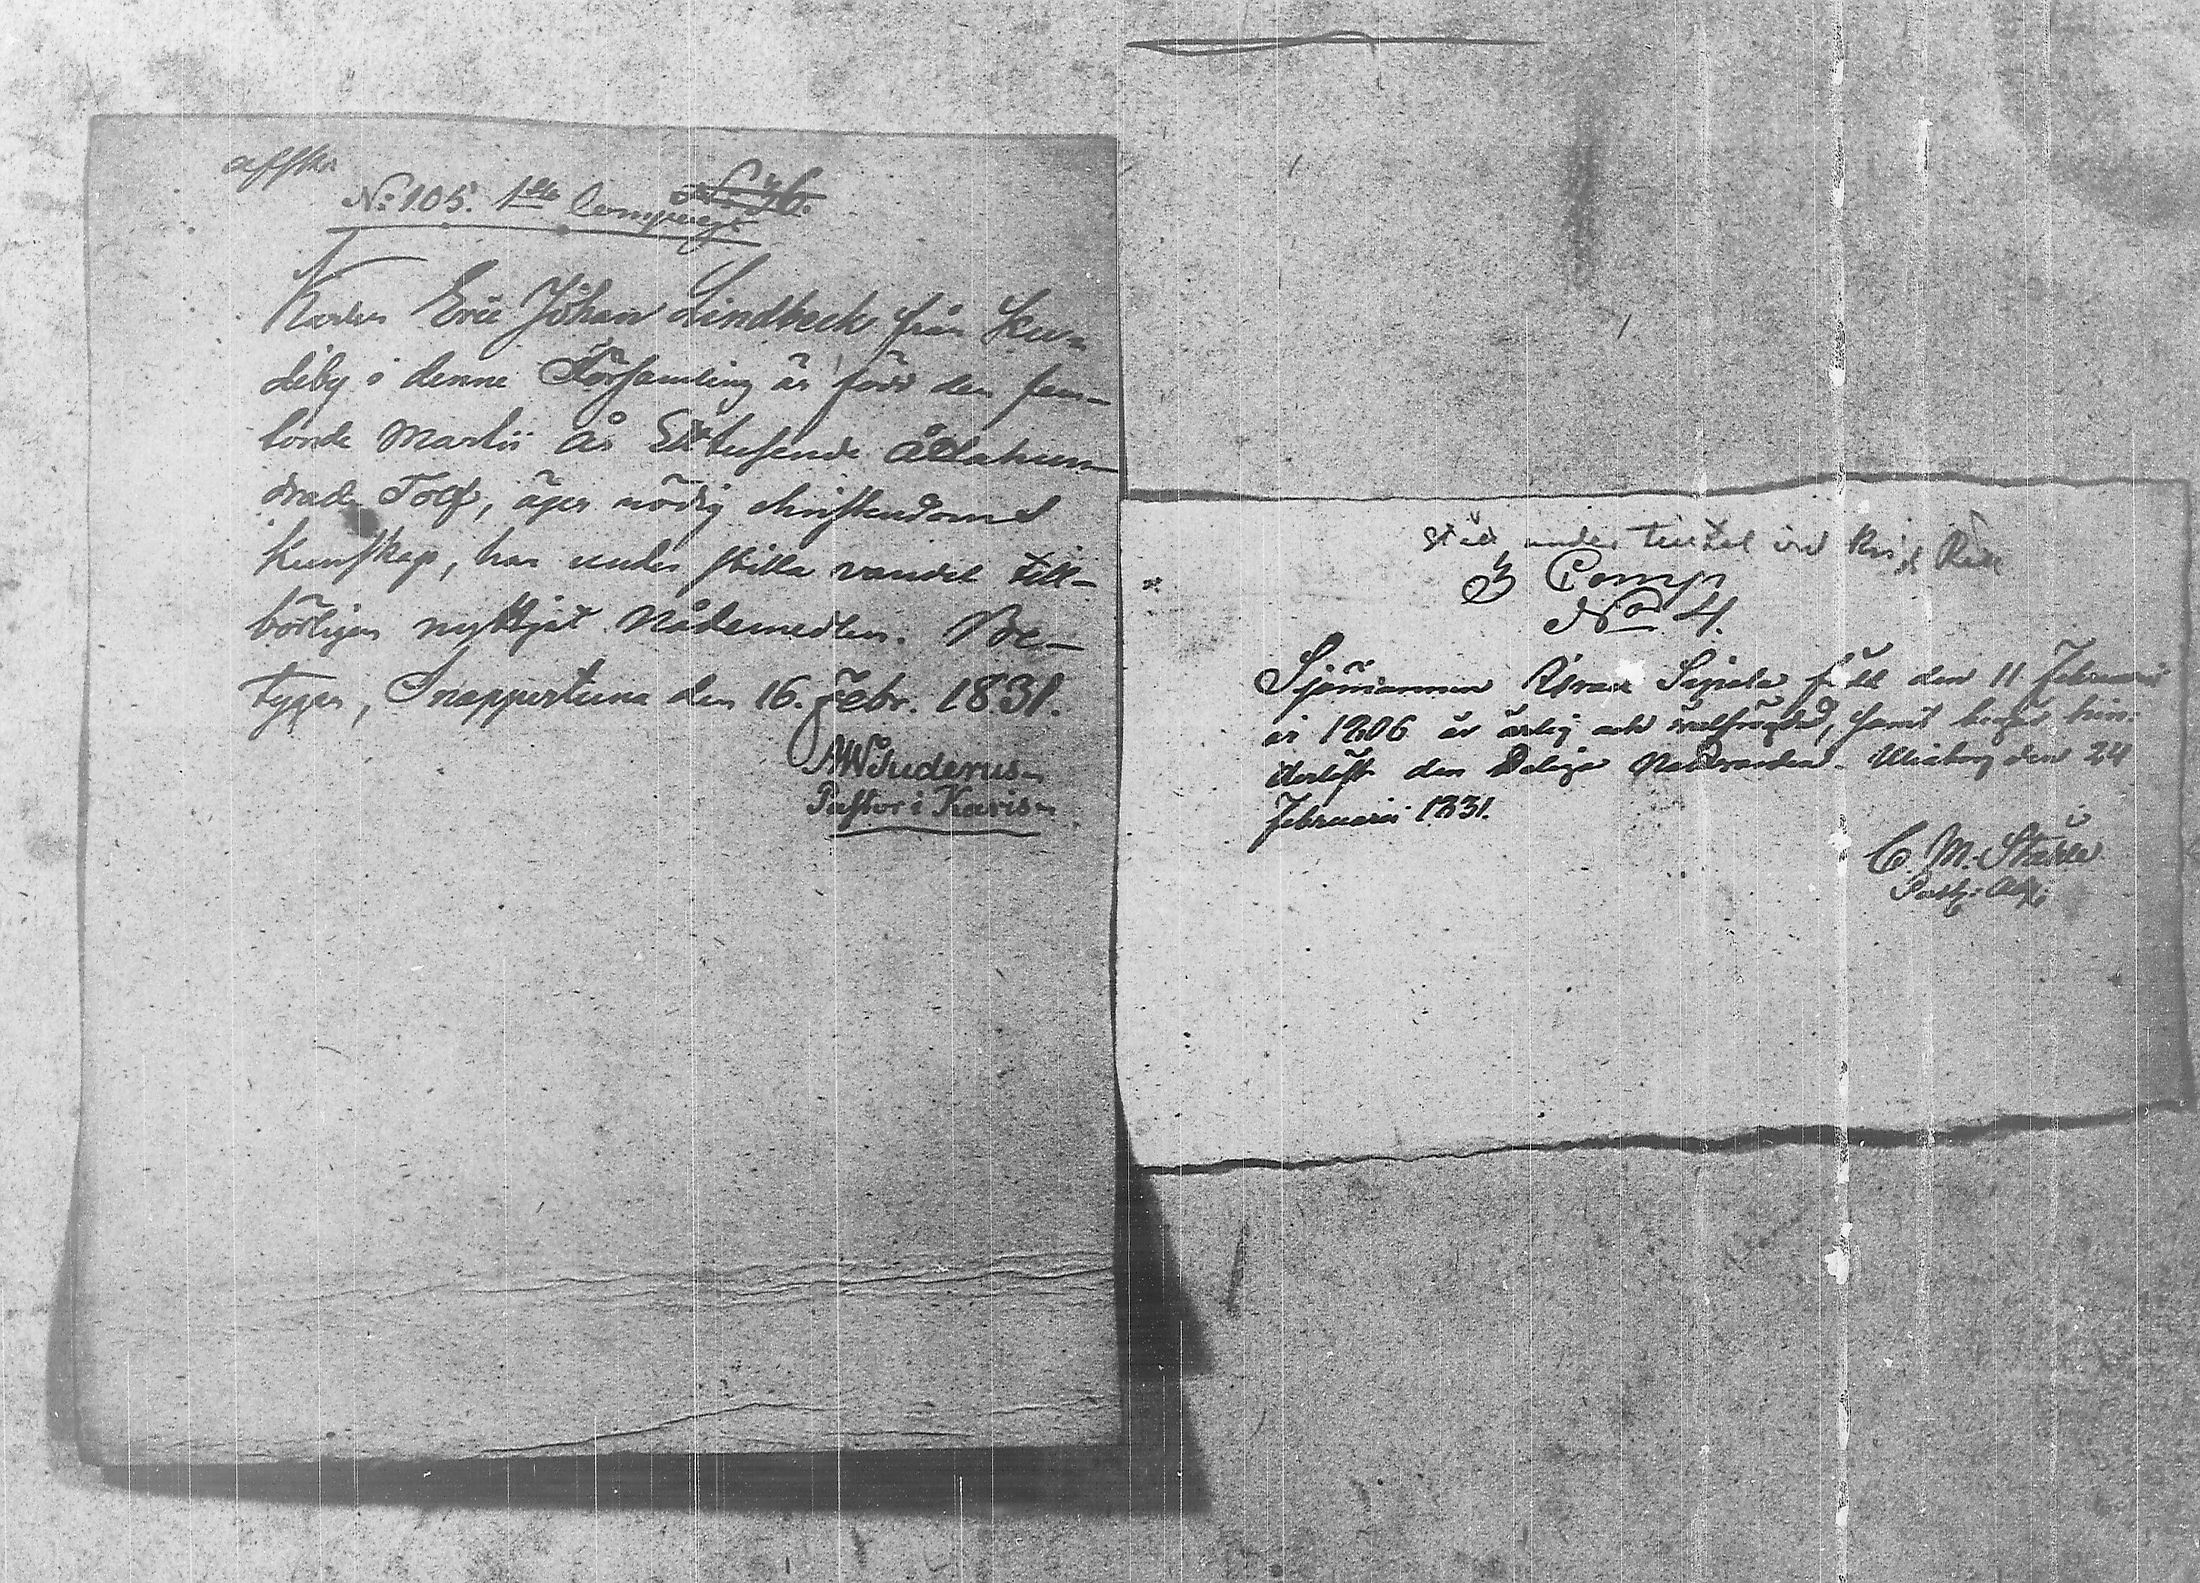 affsk
No: 105. 1sta Compagt
Karlen Eric Johan Lindbeck från Skun-
deby i denne Församling är född den fem-
tonde Martii År Ettusende Åttahun-
drade Tolf, äger nödig christendoms
kunskap, har under stilla vandel till-
börligen nyttjat Nådemedlen. Be-
tygar, Snappertuna den 16. Febr. 1831.
AW Tuderus
Pastor i Karis
står under
3 Comp
No 4.
Sjömannen född den 11 Februarii
1806 är ärlig och välfräjdad, samt begår hin-
derlöst den Heliga Nattvarden. Uleåborg den 24
Februarii 1831.
C. M.
Past: Adj: